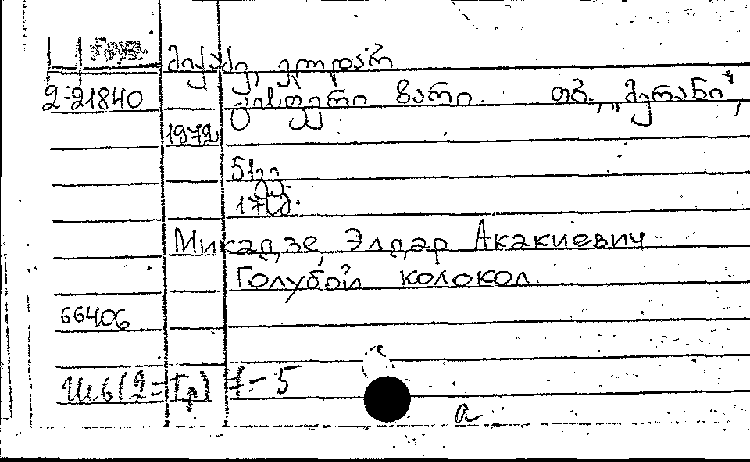 Груз.
მიქაძე, ელდარ
2-21840 ცისფერი ზარი. თბ., "მერანი",
1972
51გვ.
17კ.
Микадзе, Элдар Акакиевич
Голубой колокол.
66406
Ш6(2=Гр)7-5
а